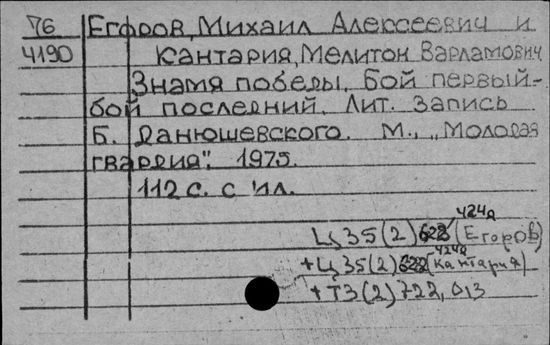 76 Егоров, Михаил Алексеевич и
4190 Кантария, Мелитон Варламович
Знамя победы. Бой первый-
бой последний. Лит. запись
Б. Данюшевского. М., „Молодая
гвардия", 1975.
112 с. с ил.
424д
Ц35(2)622 (Егоров)
424д
+Ц35(2)622 (Кантария)
+Т3(2)722,013